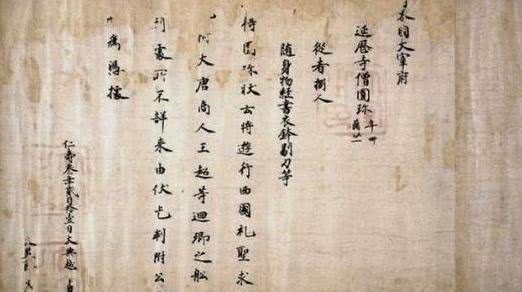 本國大宰府
延曆寺僧圓珍 年卌
臈廿一
從者捌人
隨身物經書衣鉢剔刀等
得圓珍狀云將遊行西國礼聖求
附大唐商人王超等迴鄉之舩
到處所不詳来由伏乞判附公
為憑據
仁壽叁年貳月拾壹日大典越